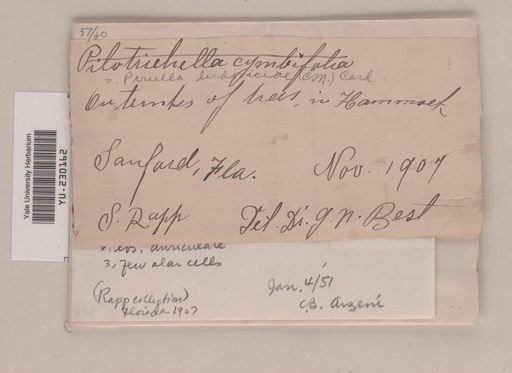 57/40
Pilotrichella cymbifolia
= (C.M.) Card.
On trunks of trees, in Hammock
Sanford, Fla. Nov. 1907
S. Rapp Det. Dr. G. N. Best
auriculate
3, few alar cells
(Rapp collection) Jan. 4/51
Florida 1907 C.B. Arzeni
Yale University Herbarium
YU-230162